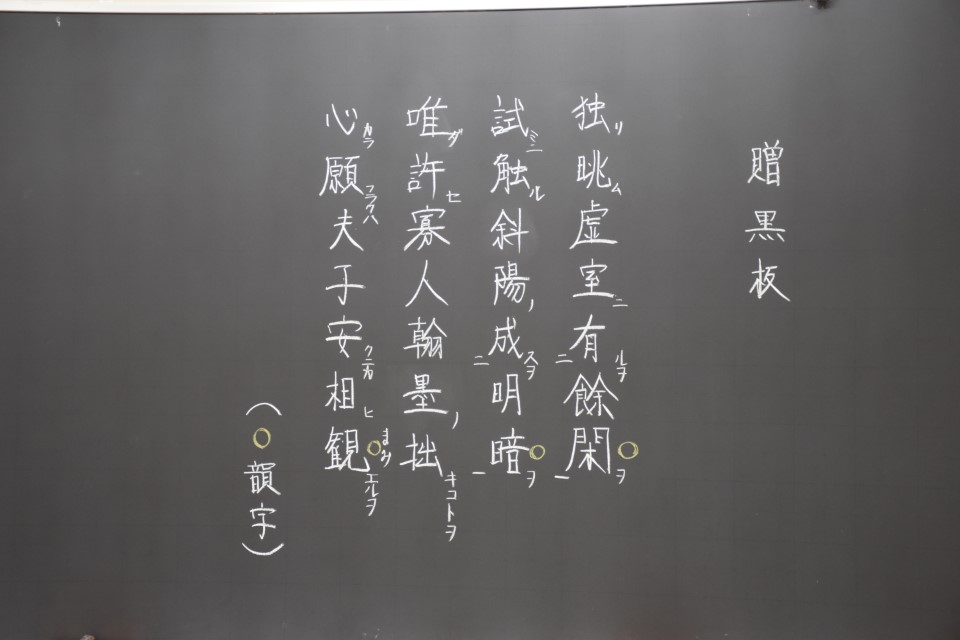 贈黒板
独リ眺ム虚室ニ有ルヲ二餘閑○ヲ一
試ミニ触ル斜陽ノ成スヲ二明暗○ヲ一
唯ダ許セ寡人翰墨ノ拙キコトヲ
心カラ願フラクハ夫子安クニカ相ヒ観○まみエルヲ
（○韻字）